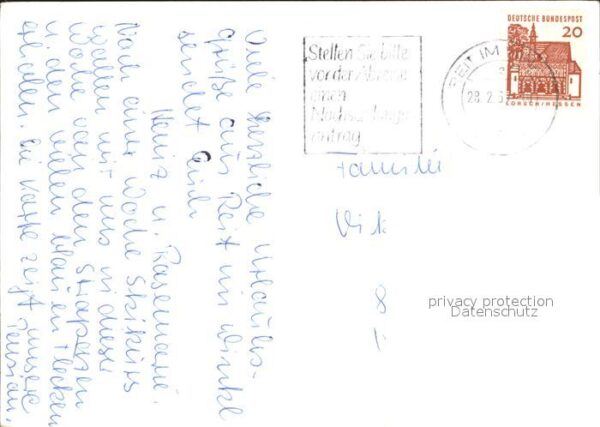 Viele herzliche Urlaubs-
grüße aus Reit im Winkl
sendet Euch
Heinz u. Rosemarie.
Nach einer Woche Skikurs
wollen wir uns in dieser
Woche von den Strapazen
u. den vielen blauen Flecken
erholen. Die Karte zeigt unsere
Pension.
Stellen Sie bitte
vor der Abreise
einen
Nachsendungs-
antrag
REIT IM
28.2.6
DEUTSCHE BUNDESPOST
20
LORSCH/HESSEN
Familie
8
privacy protection
Datenschutz